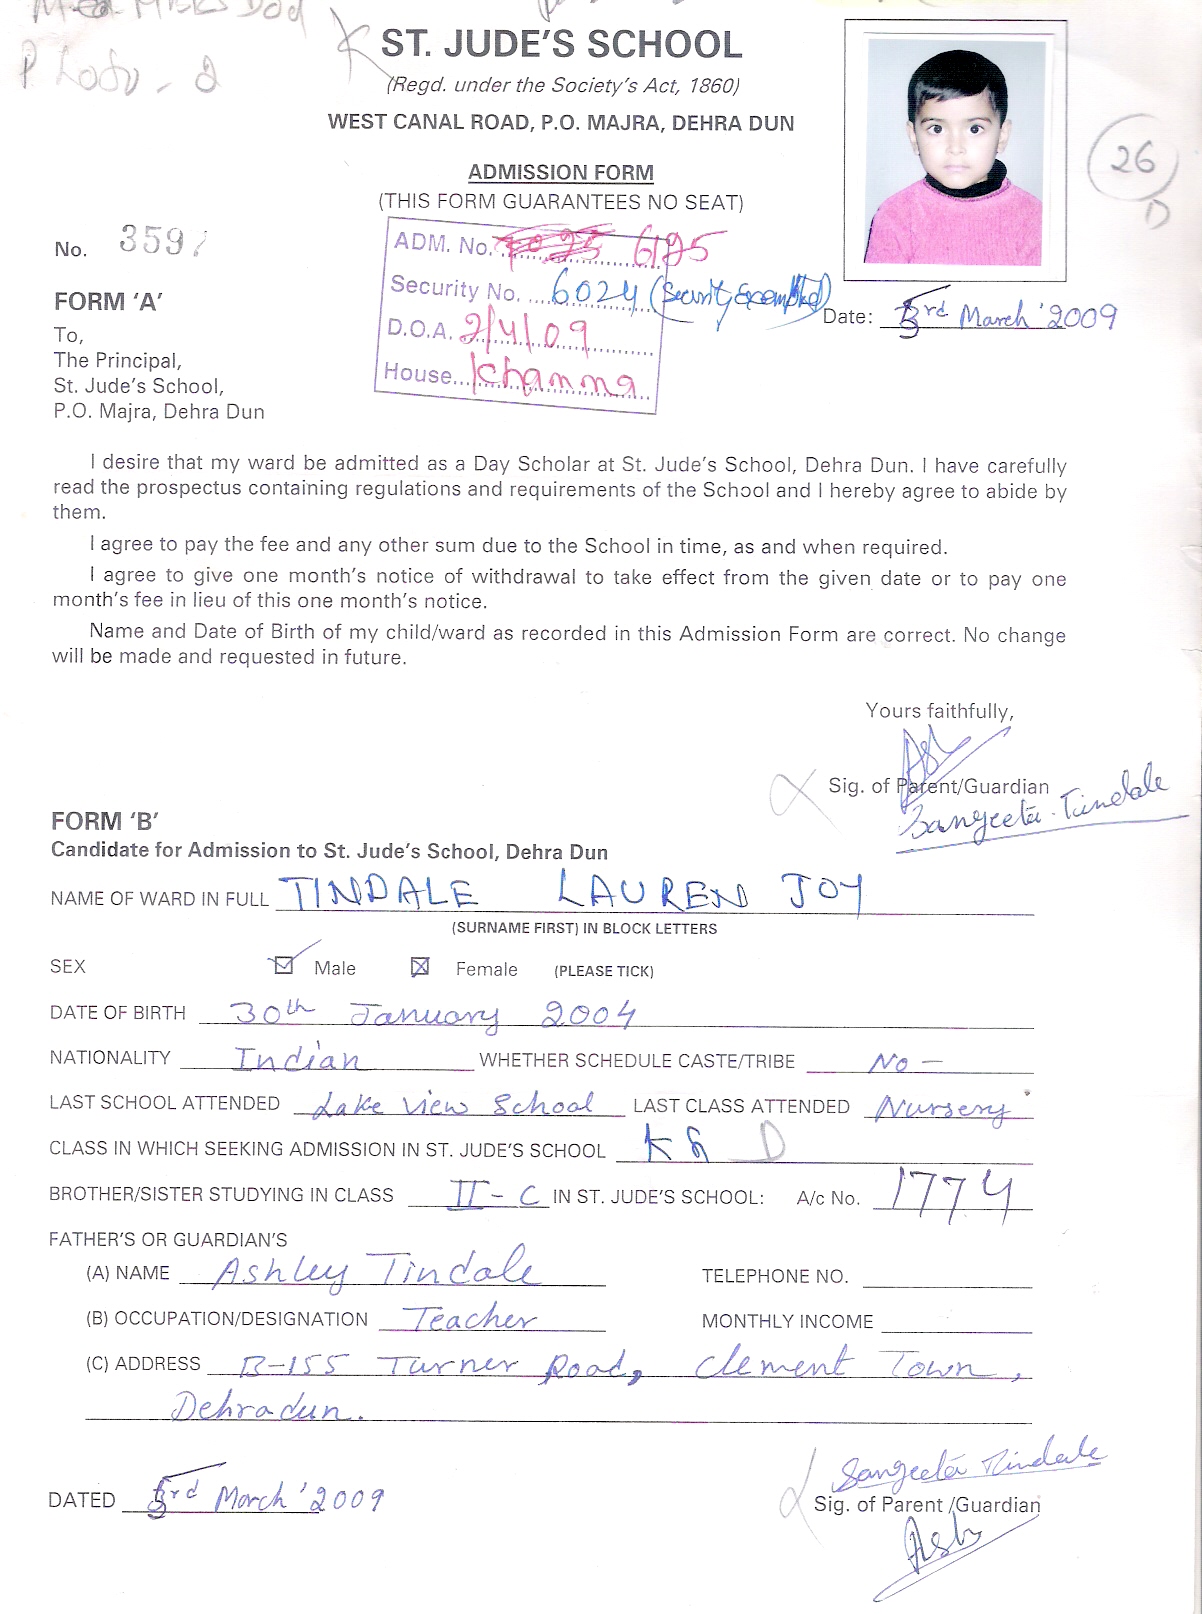 ST. JUDE'S SCHOOL
(Regd. under the Society's Act, 1860)
WEST CANAL ROAD, P.O. MAJRA, DEHRA DUN
26
D
ADMISSION FORM
(THIS FORM GUARANTEES NO SEAT)
No. 3597
ADM. No. 6195
Security No. 6024 (Security Exempted)
D.O.A. 2/4/09
House Khanna
Date: 3rd March '2009
FORM 'A'
To,
The Principal,
St. Jude's School,
P.O. Majra, Dehra Dun
I desire that my ward be admitted as a Day Scholar at St. Jude's School, Dehra Dun. I have carefully
read the prospectus containing regulations and requirements of the School and I hereby agree to abide by
them.
I agree to pay the fee and any other sum due to the School in time, as and when required.
I agree to give one month's notice of withdrawal to take effect from the given date or to pay one
month's fee in lieu of this one month's notice.
Name and Date of Birth of my child/ward as recorded in this Admission Form are correct. No change
will be made and requested in future.
Yours faithfully,
Sig. of Parent/Guardian
Sangeeta Tindale
FORM 'B'
Candidate for Admission to St. Jude's School, Dehra Dun
NAME OF WARD IN FULL TINDALE LAUREN JOY
(SURNAME FIRST) IN BLOCK LETTERS
SEX Male Female (PLEASE TICK)
DATE OF BIRTH 30th January 2004
NATIONALITY Indian WHETHER SCHEDULE CASTE/TRIBE No -
LAST SCHOOL ATTENDED Lake View School LAST CLASS ATTENDED Nursery
CLASS IN WHICH SEEKING ADMISSION IN ST. JUDE'S SCHOOL KG D
BROTHER/SISTER STUDYING IN CLASS II-C IN ST. JUDE'S SCHOOL: A/c No. 1774
FATHER'S OR GUARDIAN'S
(A) NAME Ashley Tindale TELEPHONE NO.
(B) OCCUPATION/DESIGNATION Teacher MONTHLY INCOME
(C) ADDRESS B-155 Turner Road, Clement Town,
Dehradun.
Sangeeta Tindale
DATED 3rd March '2009
Sig. of Parent /Guardian
Ash